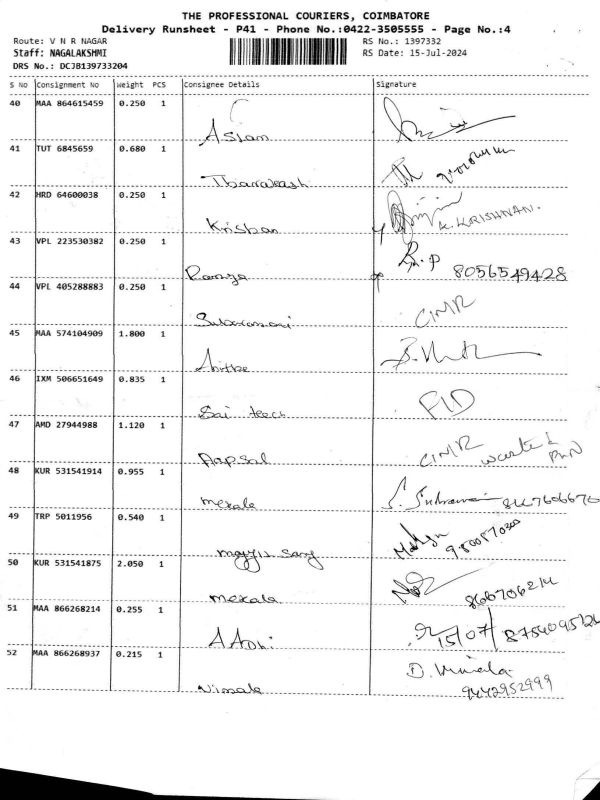 THE PROFESSIONAL COURIERS, COIMBATORE
Delivery Runsheet - P41 - Phone No.:0422-3505555 - Page No.:4
Route: V N R NAGAR RS No.: 1397332
Staff: NAGALAKSHMI RS Date: 15-Jul-2024
DRS No.: DCJB139733204
S No Consignment No Weight PCS Consignee Details Signature
40 MAA 864615459 0.250 1
Aslan
41 TUT 6845659 0.680 1
42 HRD 64600038 0.250 1
Krishan K. KRISHNAN.
43 VPL 223530382 0.250 1
R.P 8056549428
44 VPL 405288883 0.250 1
45 MAA 574104909 1.800 1
46 IXM 506651649 0.835 1
Sai teecs
47 AMD 27944988 1.120 1
48 KUR 531541914 0.955 1
mekala
49 TRP 5011956 0.540 1
50 KUR 531541875 2.050 1
mekala
51 MAA 866268214 0.255 1
AAdhi 15/07/
52 MAA 866268937 0.215 1
D. Nirmala
9442952999